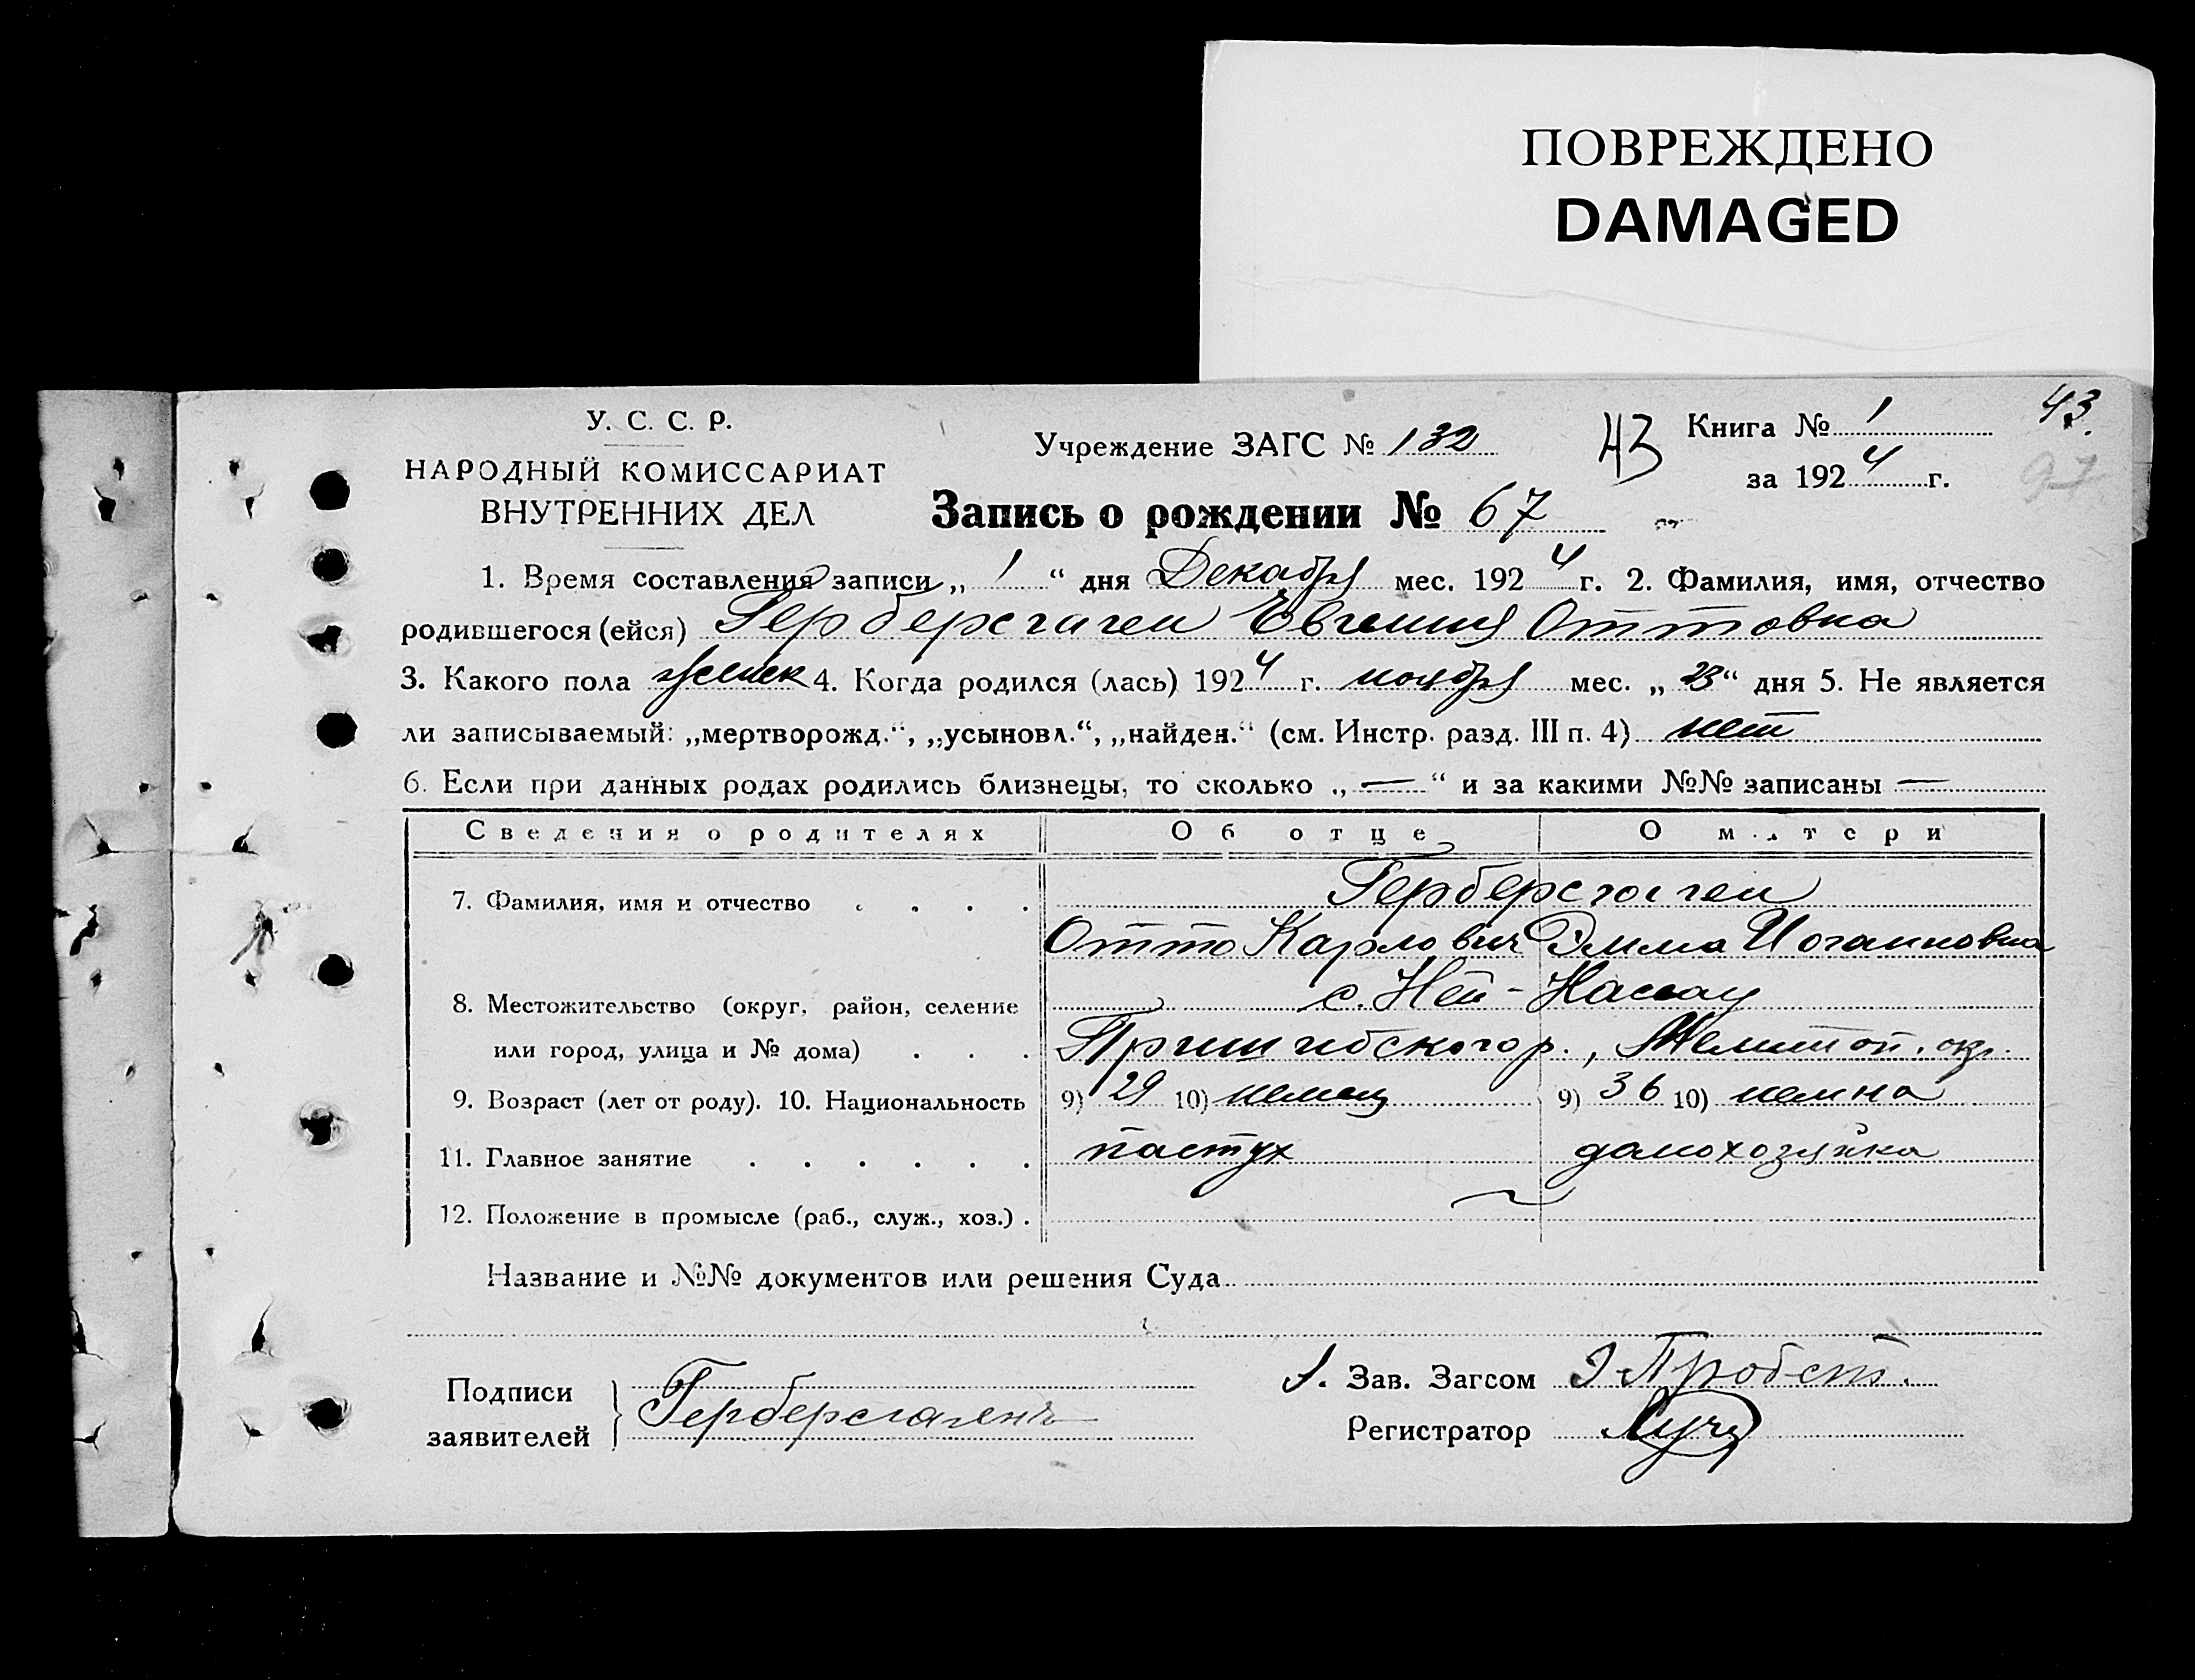 ПОВРЕЖДЕНО
DAMAGED
У. С. С. Р.
НАРОДНЫЙ КОМИССАРИАТ
ВНУТРЕННИХ ДЕЛ
Учреждение ЗАГС № 132
43
Книга № 1
за 1924 г.
43.
97
Запись о рождении № 67
1. Время составления записи „ 1 “ дня Декабря мес. 1924 г. 2. Фамилия, имя, отчество
родившегося (ейся) Герберсгаген Евгения Оттовна
3. Какого пола женск 4. Когда родился (лась) 1924 г. ноября мес. „ 23 “ дня 5. Не является
ли записываемый: „мертворожд.“, „усыновл.“, „найден.“ (см. Инстр. разд. III п. 4) нет
6. Если при данных родах родились близнецы, то сколько „ — “ и за какими №№ записаны —
Сведения о родителях Об отце О матери
7. Фамилия, имя и отчество . . . . Герберсгаген
Отто Карлович Эмма Иоганновна
8. Местожительство (округ, район, селение с. Ней-Нассау
или город, улица и № дома) . . . Пришибского р., Мелитоп. окр.
9. Возраст (лет от роду). 10. Национальность 9) 29 10) немец 9) 36 10) немка
11. Главное занятие . . . . . . пастух домохозяйка
12. Положение в промысле (раб., служ., хоз.) . ~
Название и №№ документов или решения Суда
Подписи
заявителей
Герберсгагенъ
Зав. Загсом Пробст.
Регистратор